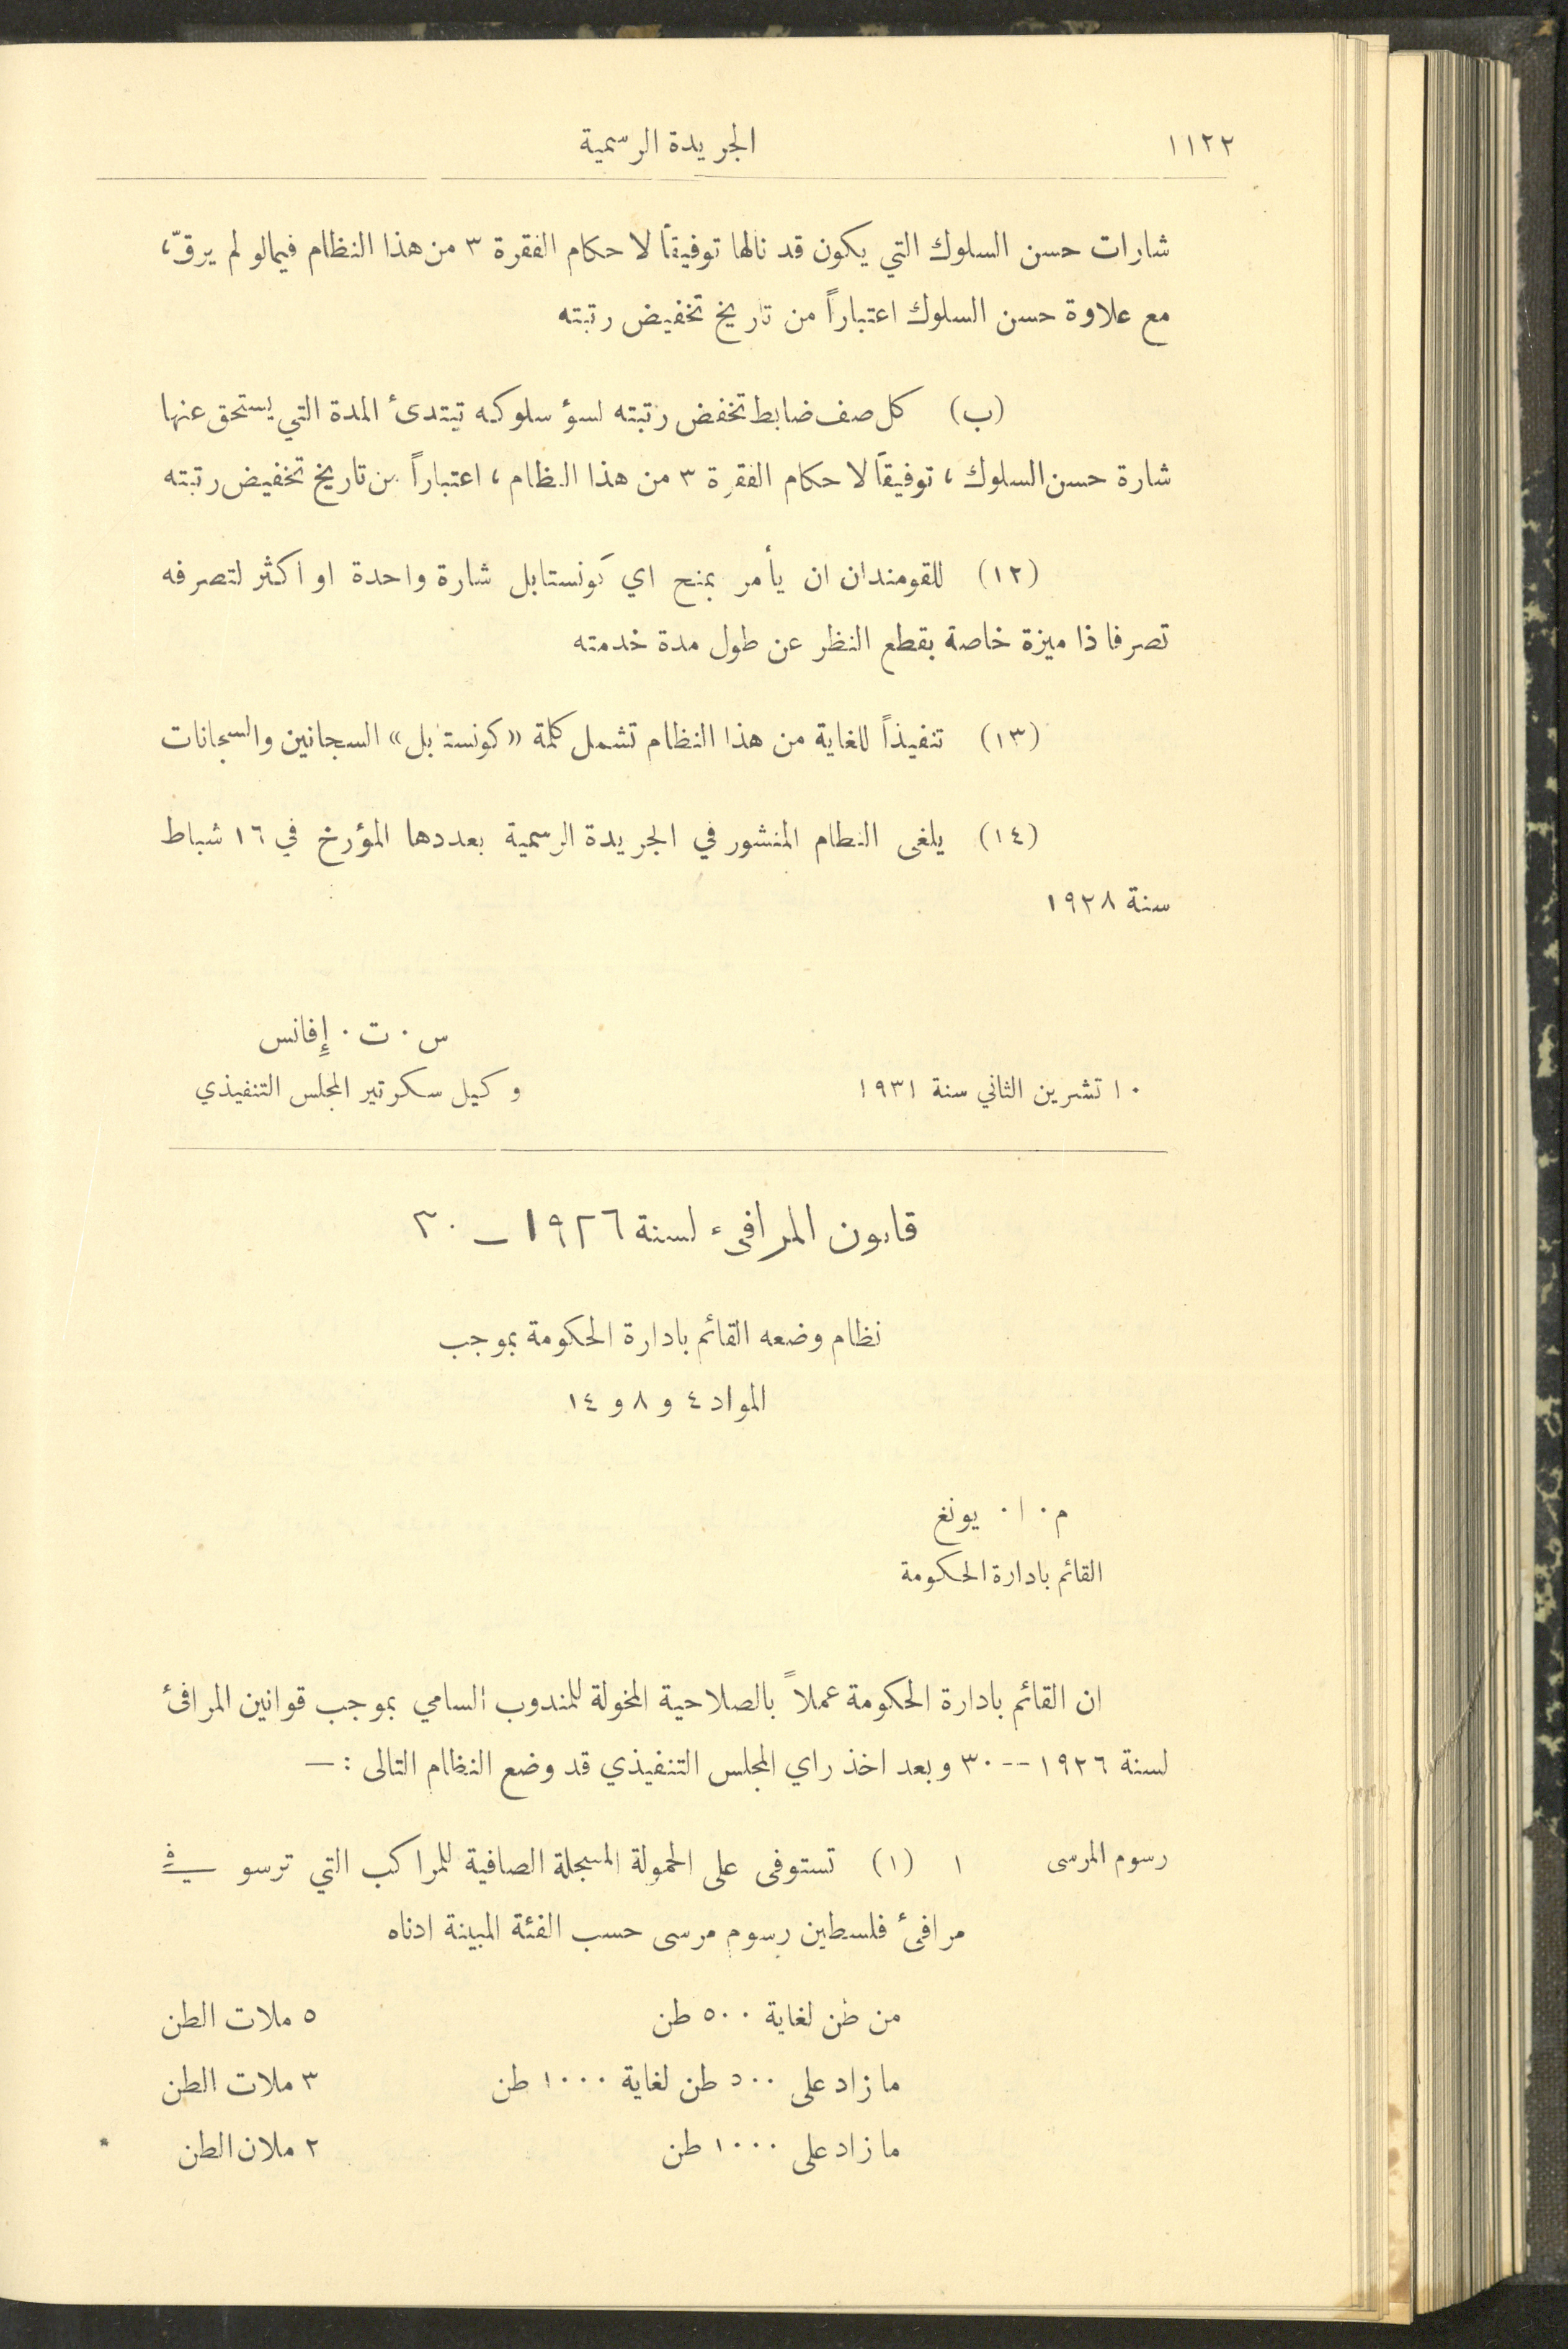 ١١٢٢
الجريدة الرسمية
شارات حسن السلوك التي يكون قد نالها توفيقاً لاحكام الفقرة ٣ من هذا النظام فيمالو لم يرقّ،
مع علاوة حسن السلوك اعتباراً من تاريخ تخفيض رتبته
(ب) كل صف ضابط تخفض رتبته لسؤ سلوكه تبتدئ المدة التي يستحق عنها
شارة حسن السلوك ، توفيقاً لاحكام الفقرة ٣ من هذا النظام ، اعتباراً من تاريخ تخفيض رتبته
(١٢) للقومندان ان يأمر بمنح اي كونستابل شارة واحدة او اكثر لتصرفه
تصرفا ذا ميزة خاصة بقطع النظر عن طول مدة خدمته
(١٣) تنفيذاً للغاية من هذا النظام تشمل كلمة «كونستابل» السجانين والسجانات
(١٤) يلغى النظام المنشور في الجريدة الرسمية بعددها المؤرخ في ١٦ شباط
سنة ١٩٢٨
س . ت . إفانس
١٠ تشرين الثاني سنة ١٩٣١
وكيل سكرتير المجلس التنفيذي
قانون المرافىء لسنة ١٩٢٦ – ٣٠
نظام وضعه القائم بادارة الحكومة بموجب
المواد ٤ و ٨ و ١٤
م . ا . يونغ
القائم بادارة الحكومة
ان القائم بادارة الحكومة عملاً بالصلاحية المخولة للمندوب السامي بموجب قوانين المرافئ
لسنة ١٩٢٦ -- ٣٠ وبعد اخذ راي المجلس التنفيذي قد وضع النظام التالى : —
رسوم المرسى
١ (١) تستوفى على الحمولة المسجلة الصافية للمراكب التي ترسو في
مرافئ فلسطين رسوم مرسى حسب الفئة المبينة ادناه
من طن لغاية ٥٠٠ طن ٥ ملات الطن
ما زاد على ٥٠٠ طن لغاية ١٠٠٠ طن ٣ ملات الطن
ما زاد على ١٠٠٠ طن ٢ ملان الطن